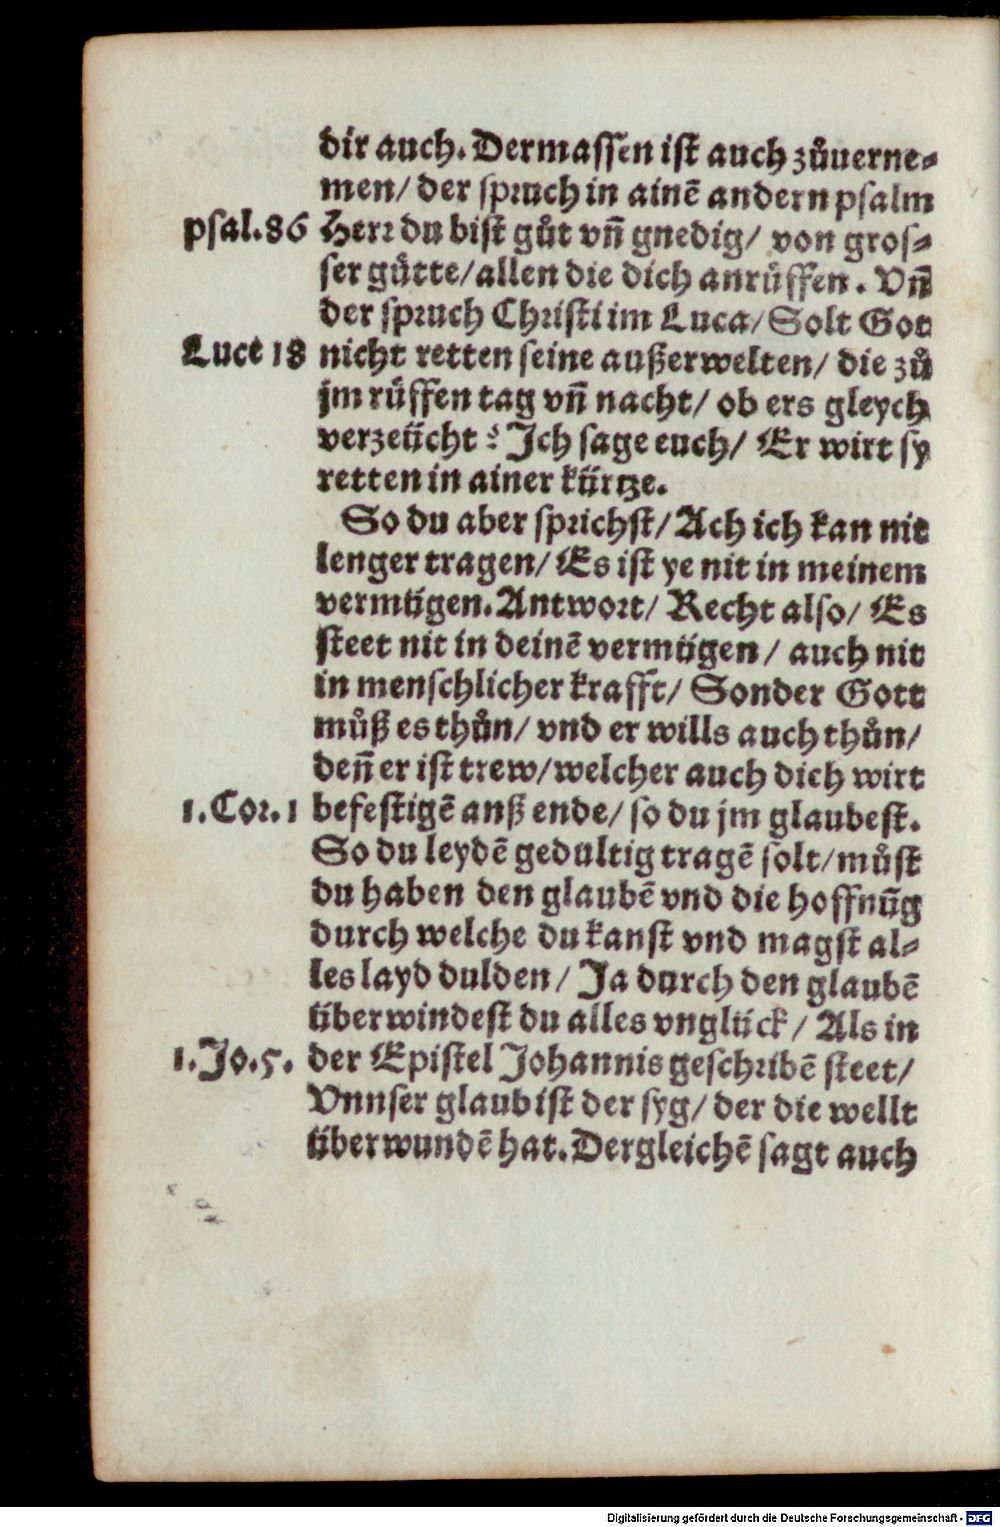 dir auch. Dermassen ist auch zůuerne⸗
men/ der spruch in ainē andern psalm
psal. 86 Herr du bist gůt vn̄ gnedig/ von gros⸗
ser gůtte/ allen die dich anrůffen. Vn̄
der spruch Christi im Luca/ Solt Got
Luce 18 nicht retten seine außerwelten/ die zů
jm růffen tag vn̄ nacht/ ob ers gleych
verzeücht? Ich sage euch/ Er wirt sy
retten in ainer kürtze.
So du aber sprichst/ Ach ich kan nit
lenger tragen/ Es ist ye nit in meinem
vermügen. Antwort/ Recht also/ Es
steet nit in deinē vermügen/ auch nit
in menschlicher krafft/ Sonder Gott
můß es thůn/ vnd er wills auch thůn/
den̄ er ist trew/ welcher auch dich wirt
1. Cor. 1 befestigē anß ende/ so du jm glaubest.
So du leydē gedultig tragē solt/ můst
du haben den glaubē vnd die hoffnūg
durch welche du kanst vnd magst al⸗
les layd dulden/ Ja durch den glaubē
überwindest du alles vnglück/ Als in
1. Jo. 5. der Epistel Johannis geschribē steet/
Vnnser glaub ist der syg/ der die wellt
überwundē hat. Dergleichē sagt auch
Digitalisierung gefördert durch die Deutsche Forschungsgemeinschaft - DFG